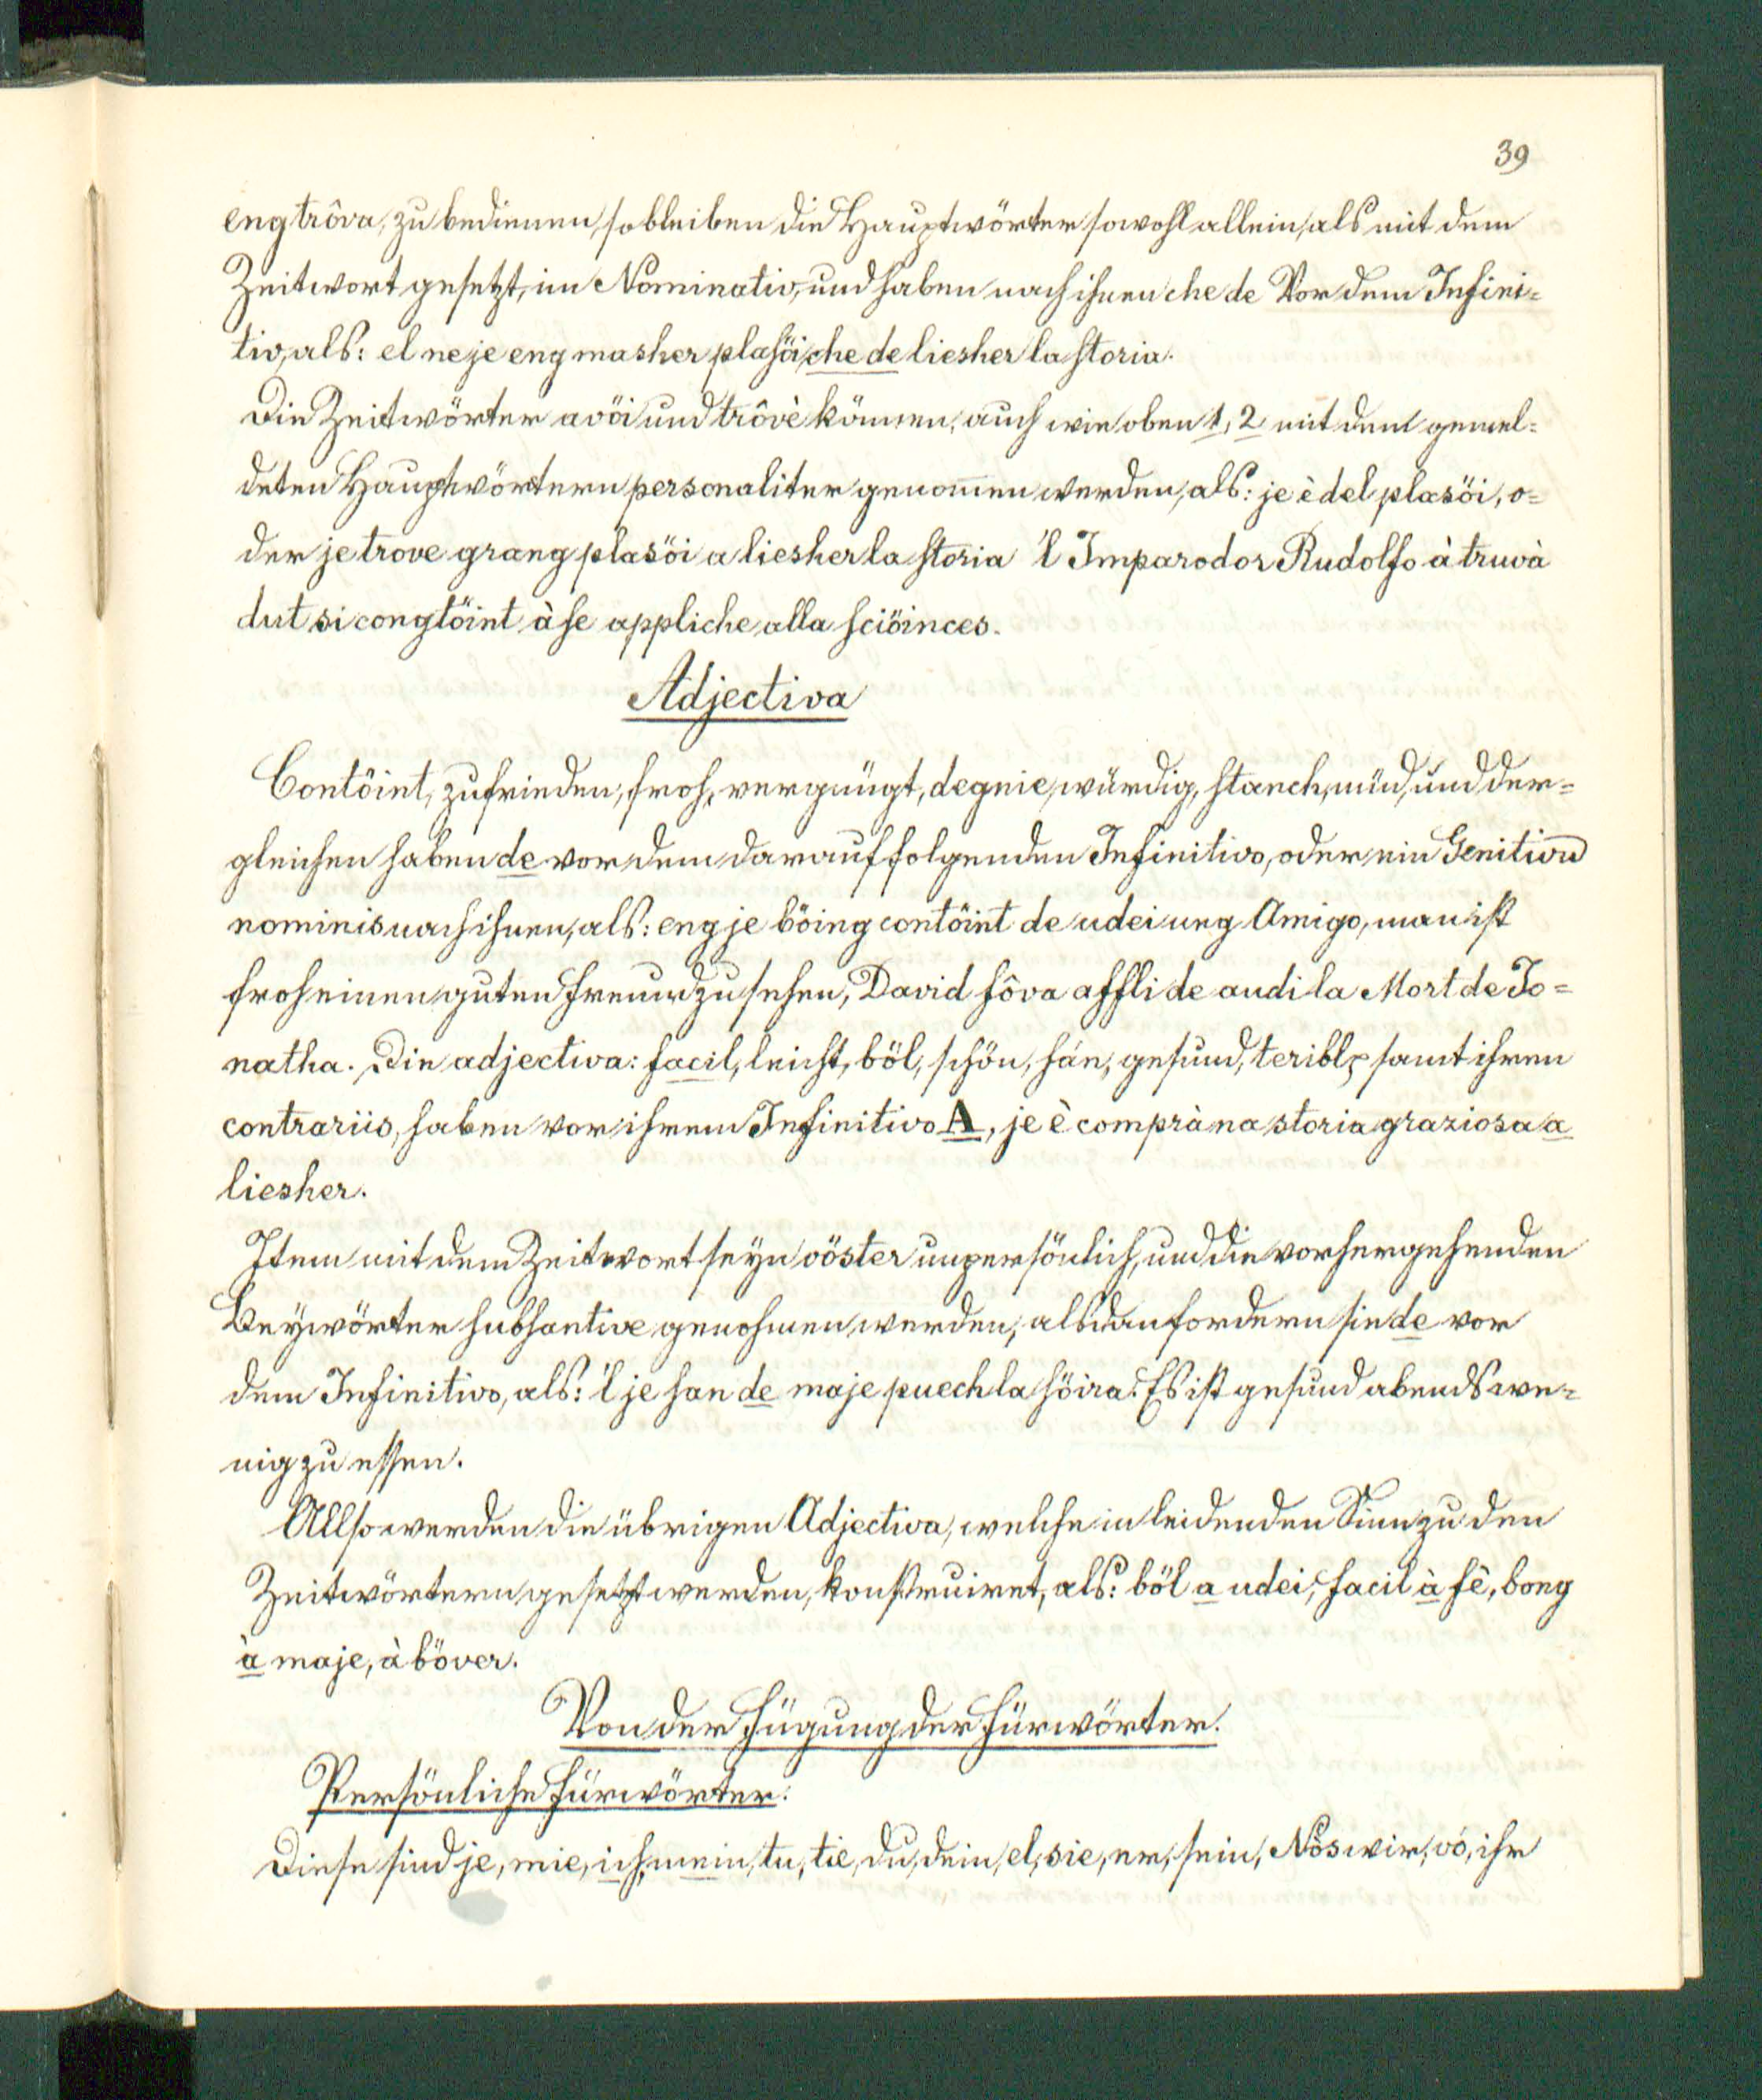 39
eng trôva, zu bedienen, so bleiben die Hauptwörter sowohl allein, als mit dem
Zeitwort gesetzt, im Nominativ, und haben nach ihnen che de Vor dem Infini=
tiv, als: el ne je eng masher plasöi che de liesher la storia.
Die Zeitwörter avöi und trôvè können, auch wie oben 1, 2 mit den gemel=
deten Hauptwörtern personaliter genom̅en werden, als: je è del plasöi, o=
der je trove grang plasöi a liesher la storia 'l Imparodor Rudolfo à truvà
dut si congtöint à se appliche alla sciöinces.
Adjectiva
Contöint, zufrieden, froh, vergnügt, degnie, würdig, stanch, müd, und der=
gleichen haben de vor dem darauf folgenden Infinitivo, oder ein Genitivu̅
nominis nach ihnen, als: eng je böing contöint de udei ung Amigo, man ist
froh einen guten Freund zu sehen, David fôva affli de audi la Mort de Jo=
natha. Die adjectiva: facil, leicht, böl, schön, sán, gesund, teribl, samt ihren
contrariis, haben vor ihrem Infinitivo A, je è comprà na storia graziosa a
liesher.
Item mit dem Zeitwort seyn vöster unpersönlich, und die vorhergehenden
Beywörter substantive genohmen werden, alsdan fordern sie de vor
dem Infinitivo, als: 'l je san de maje puech la söira. Es ist gesund abends we=
nig zu essen.
Allso werden die übrigen Adjectiva, welche in leidenden Sinn zu den
Zeitwörtern gesetzt werden, konstruiret, als: böl a udei, facil à fè, bong
à maje, à böver.
Von der Fügung der Fürwörter.
Persönliche Fürwörter:
Diese sind je, mie, ich, mein, tu, tie, du, dein, el, sie, er, sein, Nòs wir, vó, ihr